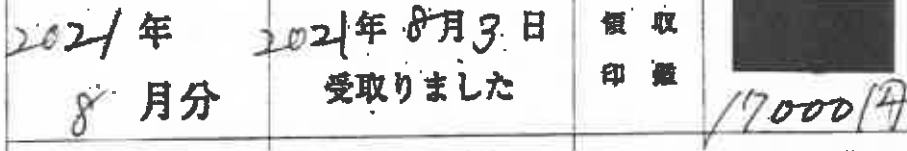 2021年
8月分
2021年8月3日
受取りました
領収
印鑑
17000円